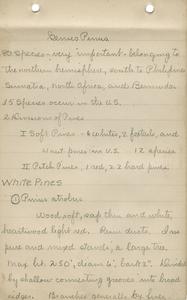 Genus Pinus
80 Species - very important - belonging to
the northern hemisphere, south to Philipine
Sumatra, North Africa, and Bermuda
15 Species occur in the U.S.
2 Divisions of Pines
I Soft Pines - 6 white, 2 foxtail, and
4 nut pines in U.S. 12 species
II Pitch Pines, 1 red, 22 hard pines.
WHITE PINES
① Pinus strobus
Wood soft, sap thin and white,
heartwood light red. Semi dense. In
pure and mixed stands, a large tree.
Max ht. 250', diam 6', bark 2". Divided
by shallow connecting grooves into broad
ridges. Branches generally by fives